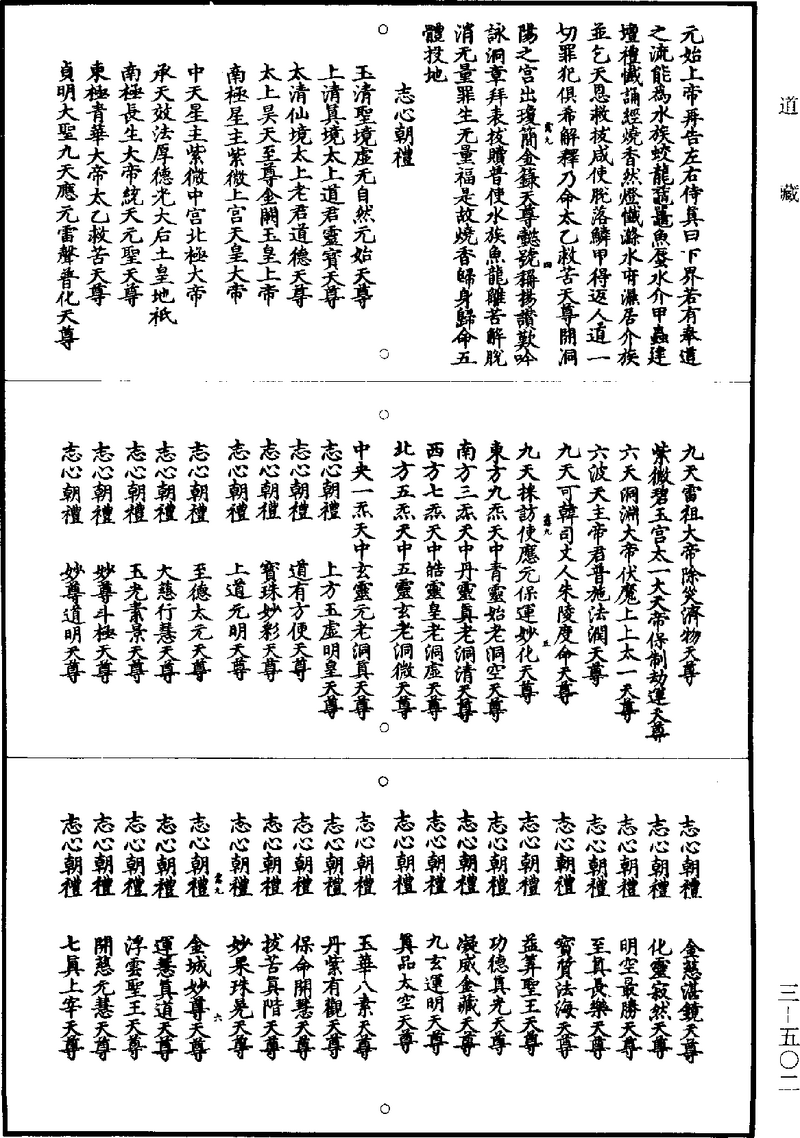 道藏
元始上帝再告左右侍真曰下界若有奉道
之流能為水族蛟龍黿鼉魚蜃水介甲蟲建
壇禮懺誦經燒香然燈懺滌水府濕居介族
並乞天恩救拔咸使脫落鱗甲得返人道一
切罪犯俱希解釋乃命太乙救苦天尊開洞
陽之宮出瓊簡金籙天尊懿號稱揚讚歎吟
詠洞章拜表拔贖普使水族魚龍離苦解脫
消无量罪生无量福是故燒香歸身歸命五
體投地
志心朝禮
玉清聖境虛无自然元始天尊
上清真境太上道君靈寶天尊
太清仙境太上老君道德天尊
太上昊天至尊金闕玉皇上帝
南極星主紫微上宮天皇大帝
中天星主紫微中宮北極大帝
承天效法厚德光大后土皇地祇
南極長生大帝統天元聖天尊
東極青華大帝太乙救苦天尊
貞明大聖九天應元雷聲普化天尊
九天雷祖大帝除災濟物天尊
紫微碧玉宮太一大天帝保制劫運天尊
六天洞淵大帝伏魔上上太一天尊
六波天主帝君普施法潤天尊
九天可韓司丈人朱陵度命天尊
九天採訪使應元保運妙化天尊
東方九炁天中青靈始老洞空天尊
南方三炁天中丹靈真老洞清天尊
西方七炁天中皓靈皇老洞虛天尊
北方五炁天中五靈玄老洞微天尊
中央一炁天中玄靈元老洞真天尊
志心朝禮　上方玉虛明皇天尊
志心朝禮　道有方便天尊
志心朝禮　寶珠妙彩天尊
志心朝禮　上道元明天尊
志心朝禮　至德太元天尊
志心朝禮　大慈行慧天尊
志心朝禮　玉光素景天尊
志心朝禮　妙尊斗極天尊
志心朝禮　妙尊道明天尊
志心朝禮　金慈湛鏡天尊
志心朝禮　化靈寂然天尊
志心朝禮　明空最勝天尊
志心朝禮　至真長樂天尊
志心朝禮　寶質法海天尊
志心朝禮　益筭聖王天尊
志心朝禮　功德真光天尊
志心朝禮　凝威金藏天尊
志心朝禮　九玄運明天尊
志心朝禮　真品太空天尊
志心朝禮　玉華八素天尊
志心朝禮　丹紫有觀天尊
志心朝禮　保命開慧天尊
志心朝禮　拔苦真階天尊
志心朝禮　妙果珠晃天尊
志心朝禮　金城妙尊天尊
志心朝禮　運慧真道天尊
志心朝禮　浮雲聖王天尊
志心朝禮　開慈元慧天尊
志心朝禮　七真上宰天尊
三－五〇二